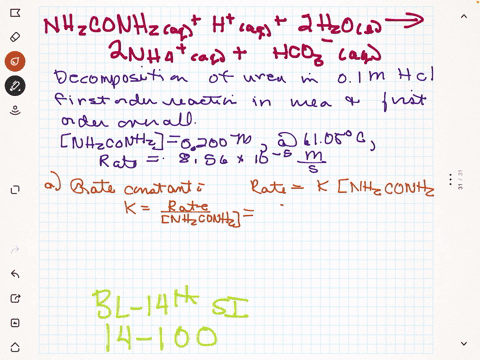 NH2CONH2(aq) + H+(aq) + 2H2O(l) →
2NH4+(aq) + HCO3-(aq)
Decomposition of urea in 0.1m HCl
first order reaction in urea & first
order overall.
[NH2CONH2] = 0.200 m, @ 61.05°C,
Rate = 8.56 × 10-5 m/s
a) Rate constant: Rate = K [NH2CONH2
K = Rate/[NH2CONH2] =
BL-14th SI
14-100
31 / 31